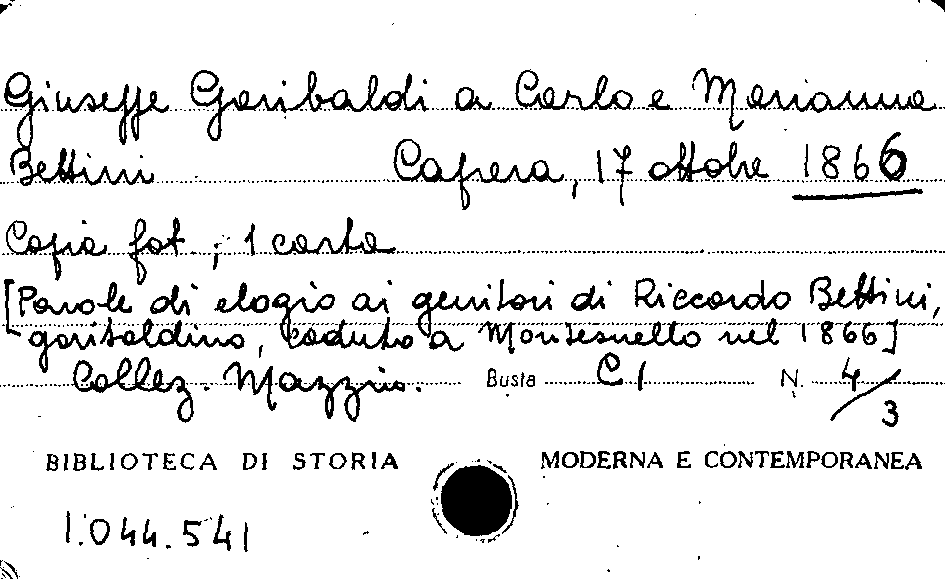 Giuseppe Garibaldi a Carlo e Marianna
Bettini Caprera, 17 ottobre 1866
Copia fot., 1 carta
[Parole di elogio ai genitori di Riccardo Bettini,
garibaldino, caduto a Montesuello nel 1866]
Collez. Mazzini. Busta C1 N. 4/3
BIBLIOTECA DI STORIA MODERNA E CONTEMPORANEA
1.044.541